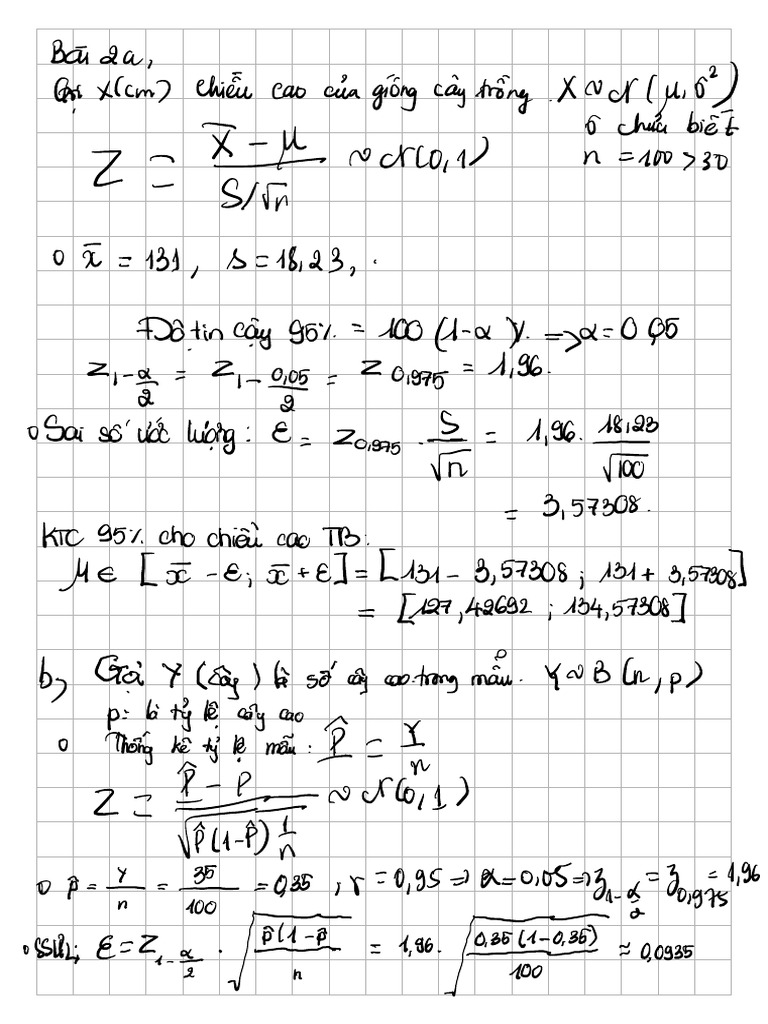 Bài 2a,
Gọi X(cm) chiều cao của giống cây trồng. X ~ N(μ, σ²)
σ chưa biết
Z = (X̄ - μ) / (S/√n) ~ N(0,1) n = 100 > 30
o x̄ = 131, s = 18,23,.
Độ tin cậy 95% = 100(1-α)%. => α = 0,05
Z_{1-α/2} = Z_{1-0,05/2} = Z_{0,975} = 1,96.
o Sai số ước lượng: ε = Z_{0,975} · S/√n = 1,96. 18,23/√100
= 3,57308.
KTC 95% cho chiều cao TB:
μ ∈ [x̄ - ε; x̄ + ε] = [131 - 3,57308; 131 + 3,57308]
= [127,42692; 134,57308]
b, Gọi Y (cây) là số cây cao trong mẫu. Y ~ B(n, p)
p: là tỷ lệ cây cao
o Thống kê tỷ lệ mẫu: P̂ = Y/n
Z = (P̂ - P) / √(P̂(1-P̂) 1/n) ~ N(0,1)
o p̂ = Y/n = 35/100 = 0,35, r = 0,95 => α = 0,05 => z_{1-α/2} = z_{0,975} = 1,96
o SSƯL; ε = Z_{1-α/2} · √(p̂(1-p̂/n) = 1,96. √(0,35(1-0,35)/100) ≈ 0,0935